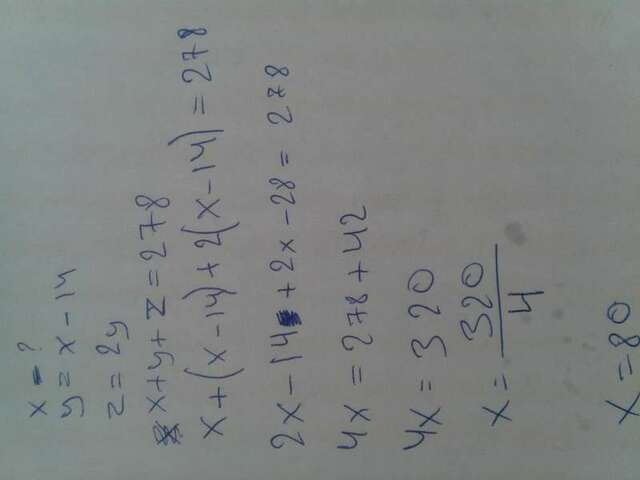 x - ?
y = x - 14
z = 2y
x + y + z = 278
x + (x - 14) + 2(x - 14) = 278
2x - 14 + 2x - 28 = 278
4x = 278 + 42
4x = 320
x = 320/4
x = 80